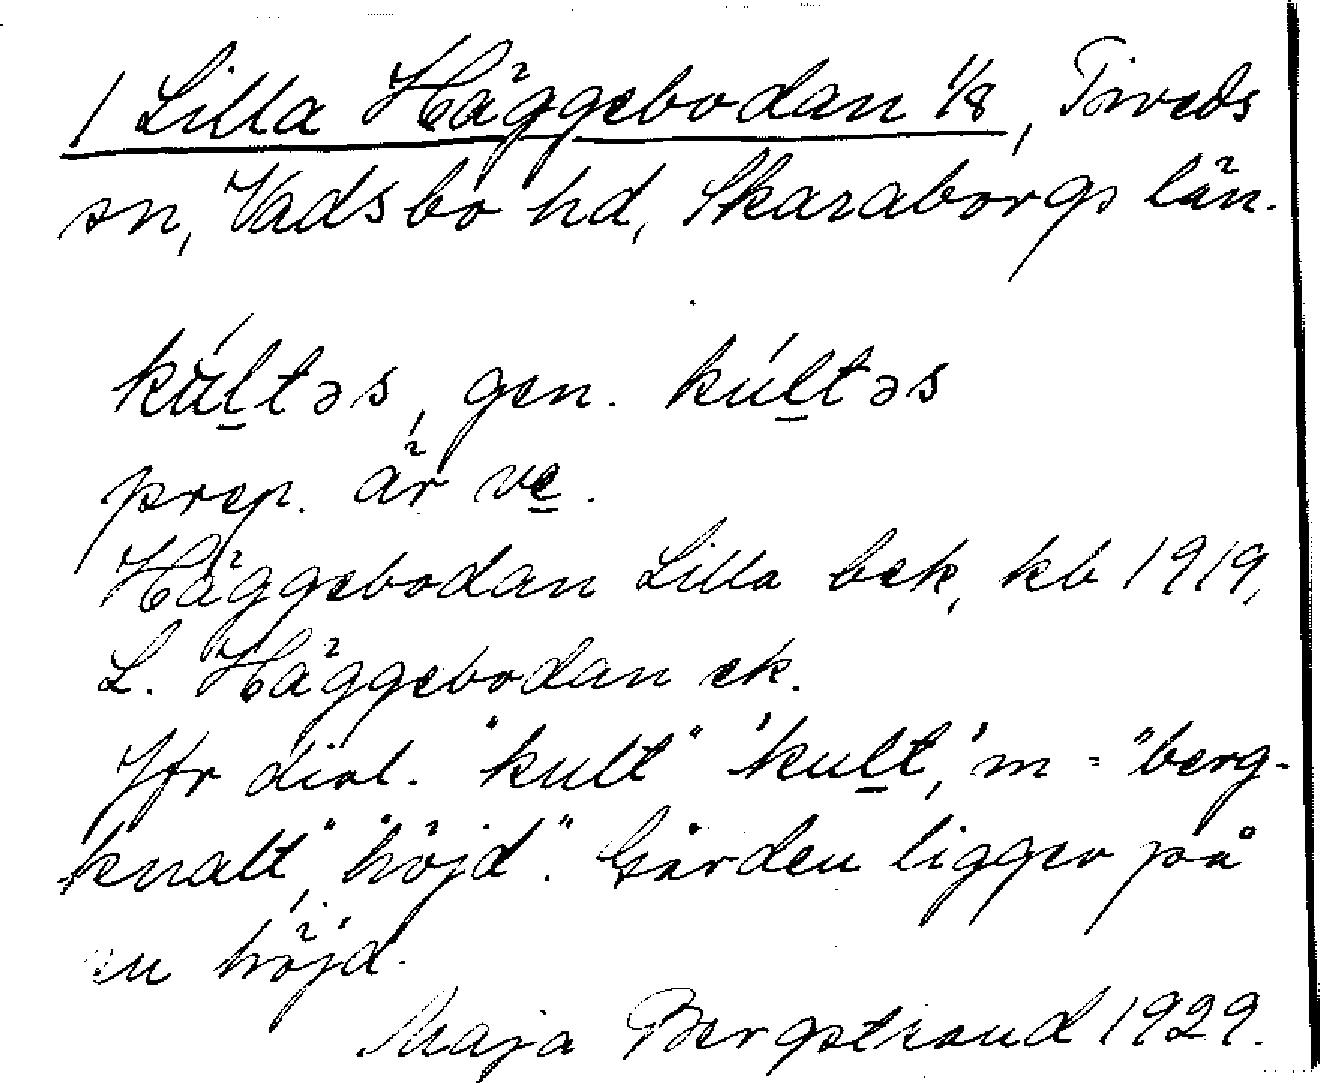 1 Lilla Häggebodan 1/8, Tiveds
sn, Vadsbo hd, Skaraborgs län.
kúltəs, gen. kúltəs
prep. är ve.
Häggebodan Lilla bek, kb 1919,
L. Häggebodan ek.
Jfr dial. "kult" 'kult,' m = "berg-
knalt", "höjd". Gården ligger på
en höjd.
Maja Bergstrand 1929.